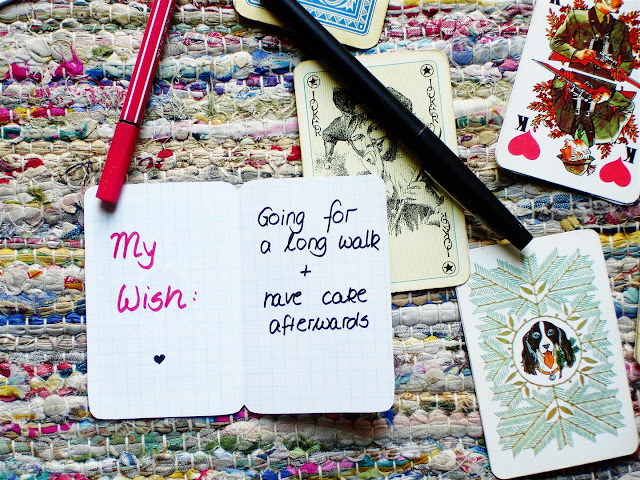 My
Wish:
Going for
a long walk
+
have cake
afterwards
JOKER
JOKER
JOKER
K
K